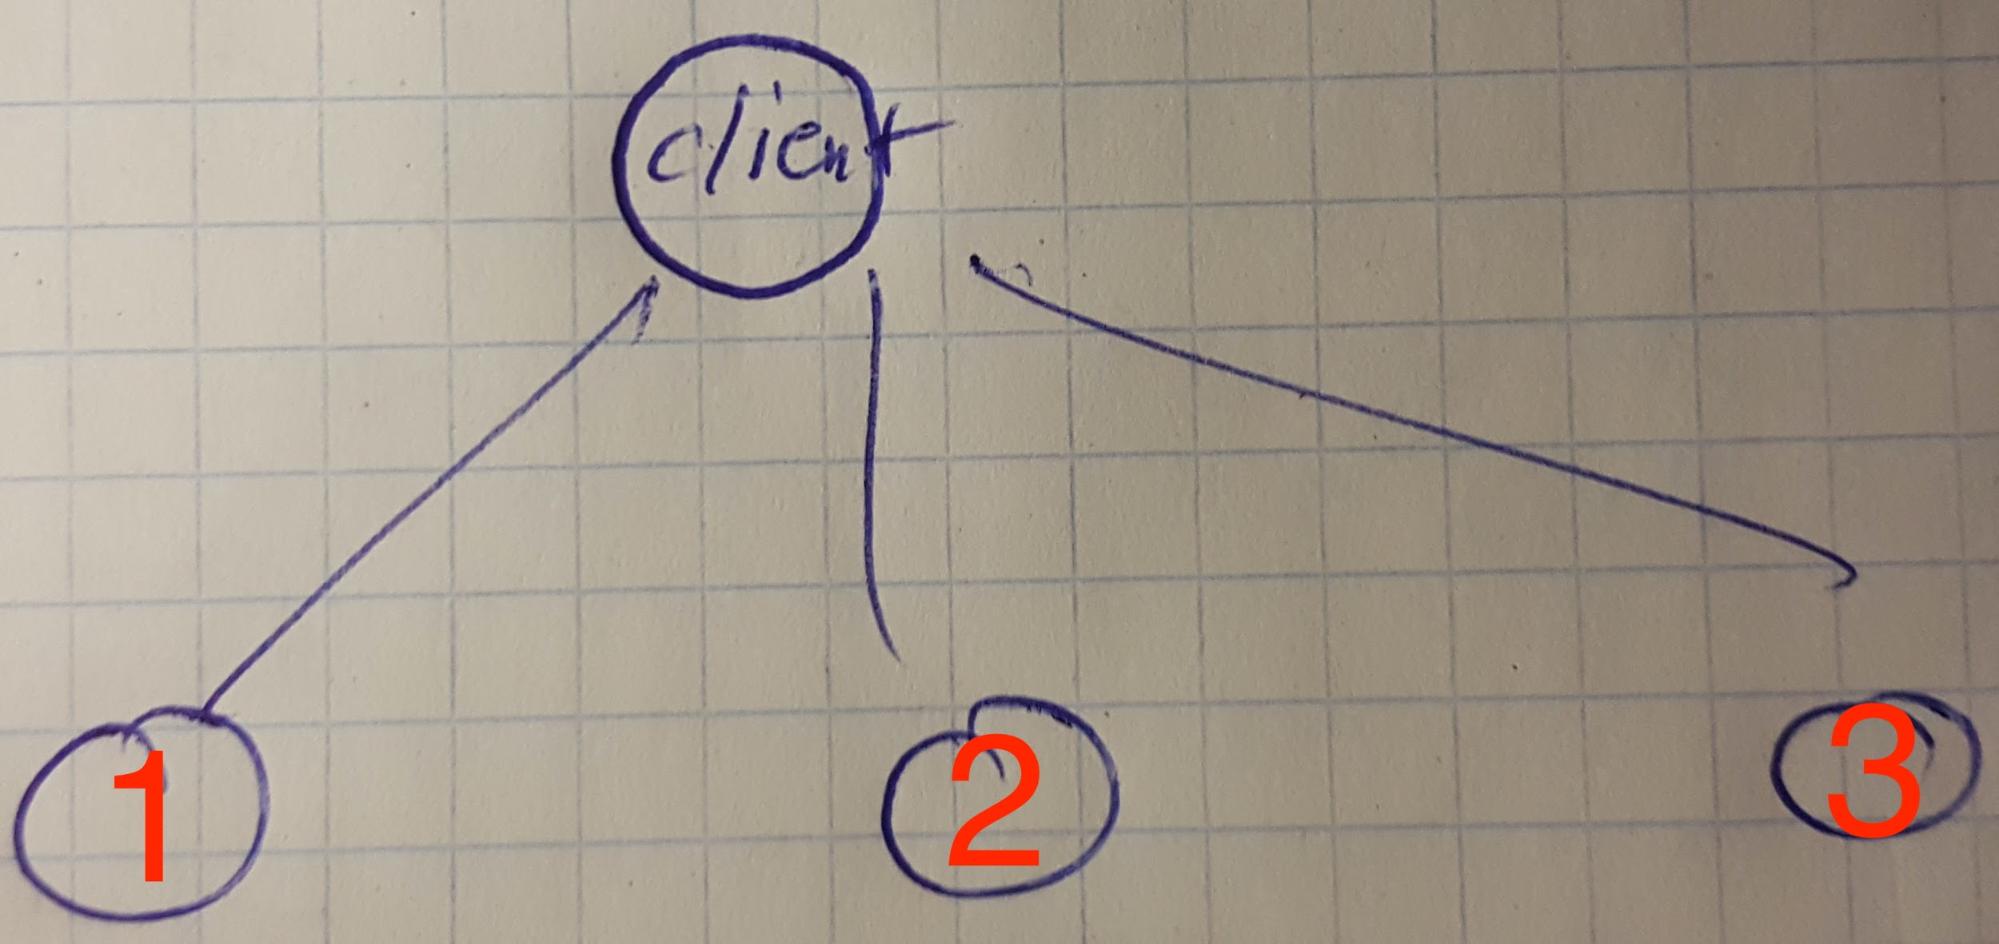 client
1 2 3